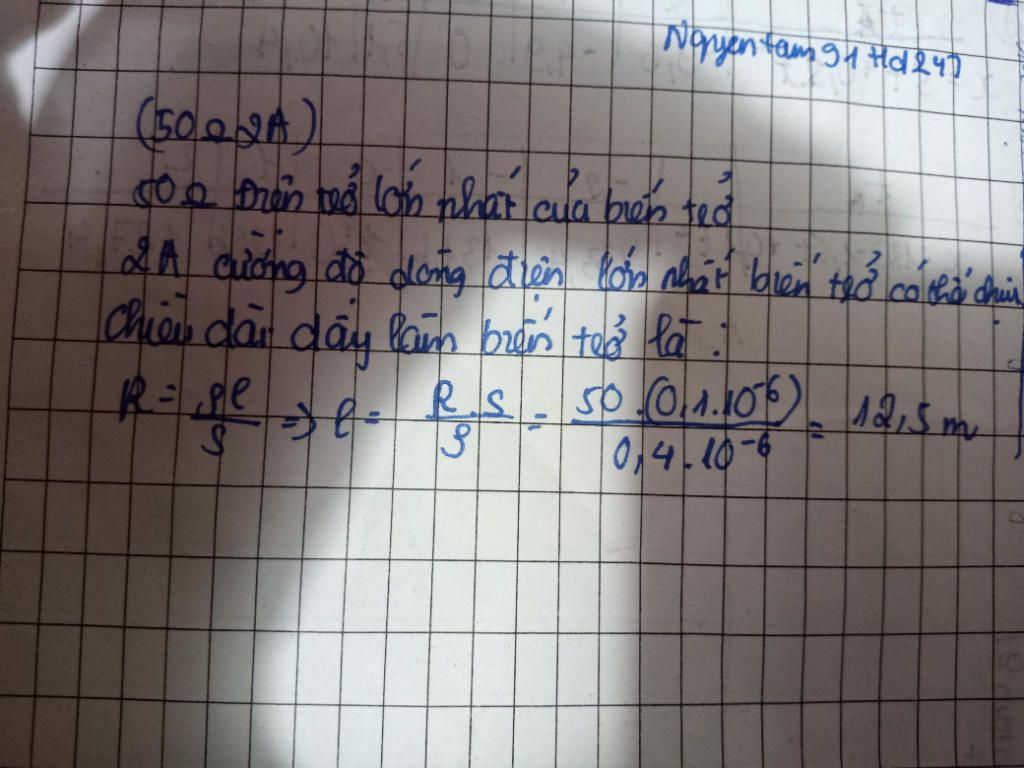 Nguyentam91 Hd247
(50Ω 2A)
50Ω điện trở lớn nhất của biến trở
2A cường độ dòng điện lớn nhất biến trở có thể chịu
Chiều dài dây làm biến trở là :
R = ρl/S => l = R.S/ρ = 50.(0,1.10⁻⁶)/0,4.10⁻⁶ = 12,5 m